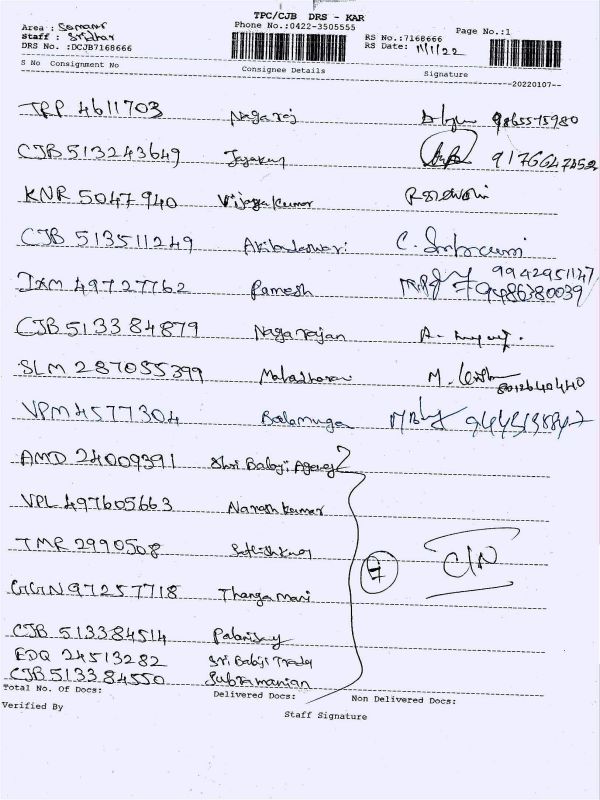 TPC/CJB DRS - KAR
Area : Somanur
Phone No.:0422-3505555
Page No.:1
Staff : Sridhar
RS No.:7168666
DRS No. :DCJB7168666
RS Date: 11/1/22
S No Consignment No Consignee Details Signature
--20220107--
TPP 4611703 Nagaraj 9865575980
CJB 513243649 Jayakumar
KNR 5047940 Vijayakumar
CJB 513511249 Akilandeswari C.
9942951147
IXM 49727762 Ramesh 9486380039
CJB 513384879 Nagarajan A.
SLM 287055399 M.
8012640440
VPM 4577304 Balamuga
AMD 24009391 Shri Balaji Agency
VPL 497605663 Naresh kumar
TMR 2990508 Sathishkumar 7 C/N
GGN 97257718 Thangamani
CJB 513384514
EDQ 24513282 Sri Balaji Traders
CJB 513384550 Subramanian
Total No. Of Docs: Delivered Docs: Non Delivered Docs:
Verified By
Staff Signature